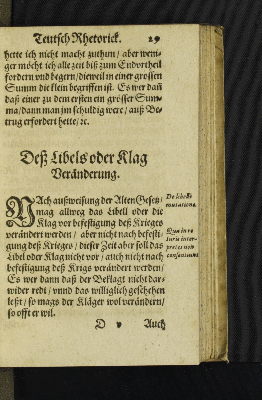 Teutsch Rhetorick. 29
hette ich nicht macht zuthun / aber weni-
ger möcht ich alle zeit biß zum Endortheil
fordern vnd begern / dieweil in einer grossen
Summ die klein begriffen ist. Es wer dañ
daß einer zu dem ersten ein grösser Sum-
ma / dann man jm schuldig were / auß Be-
trug erfordert hette / ꝛc.
Deß Libels oder Klag
Veränderung.
NAch außweisung der Alten Gesetz /
mag allweg das Libell oder die
Klag vor befestigung deß Krieges
verändert werden / aber nicht nach befesti-
gung deß Krieges / dieser Zeit aber soll das
Libel oder Klag nicht vor / auch nicht nach
befestigung deß Krigs verändert werden /
Es wer dann daß der Beklagt nicht dar-
wider redt / vnnd das williglich geschehen
leßt / so mags der Kläger wol verändern /
so offt er wil.
De libelli
mutatione.
Qua in re
iuris inter-
pretes non
consentiunt.
D v Auch